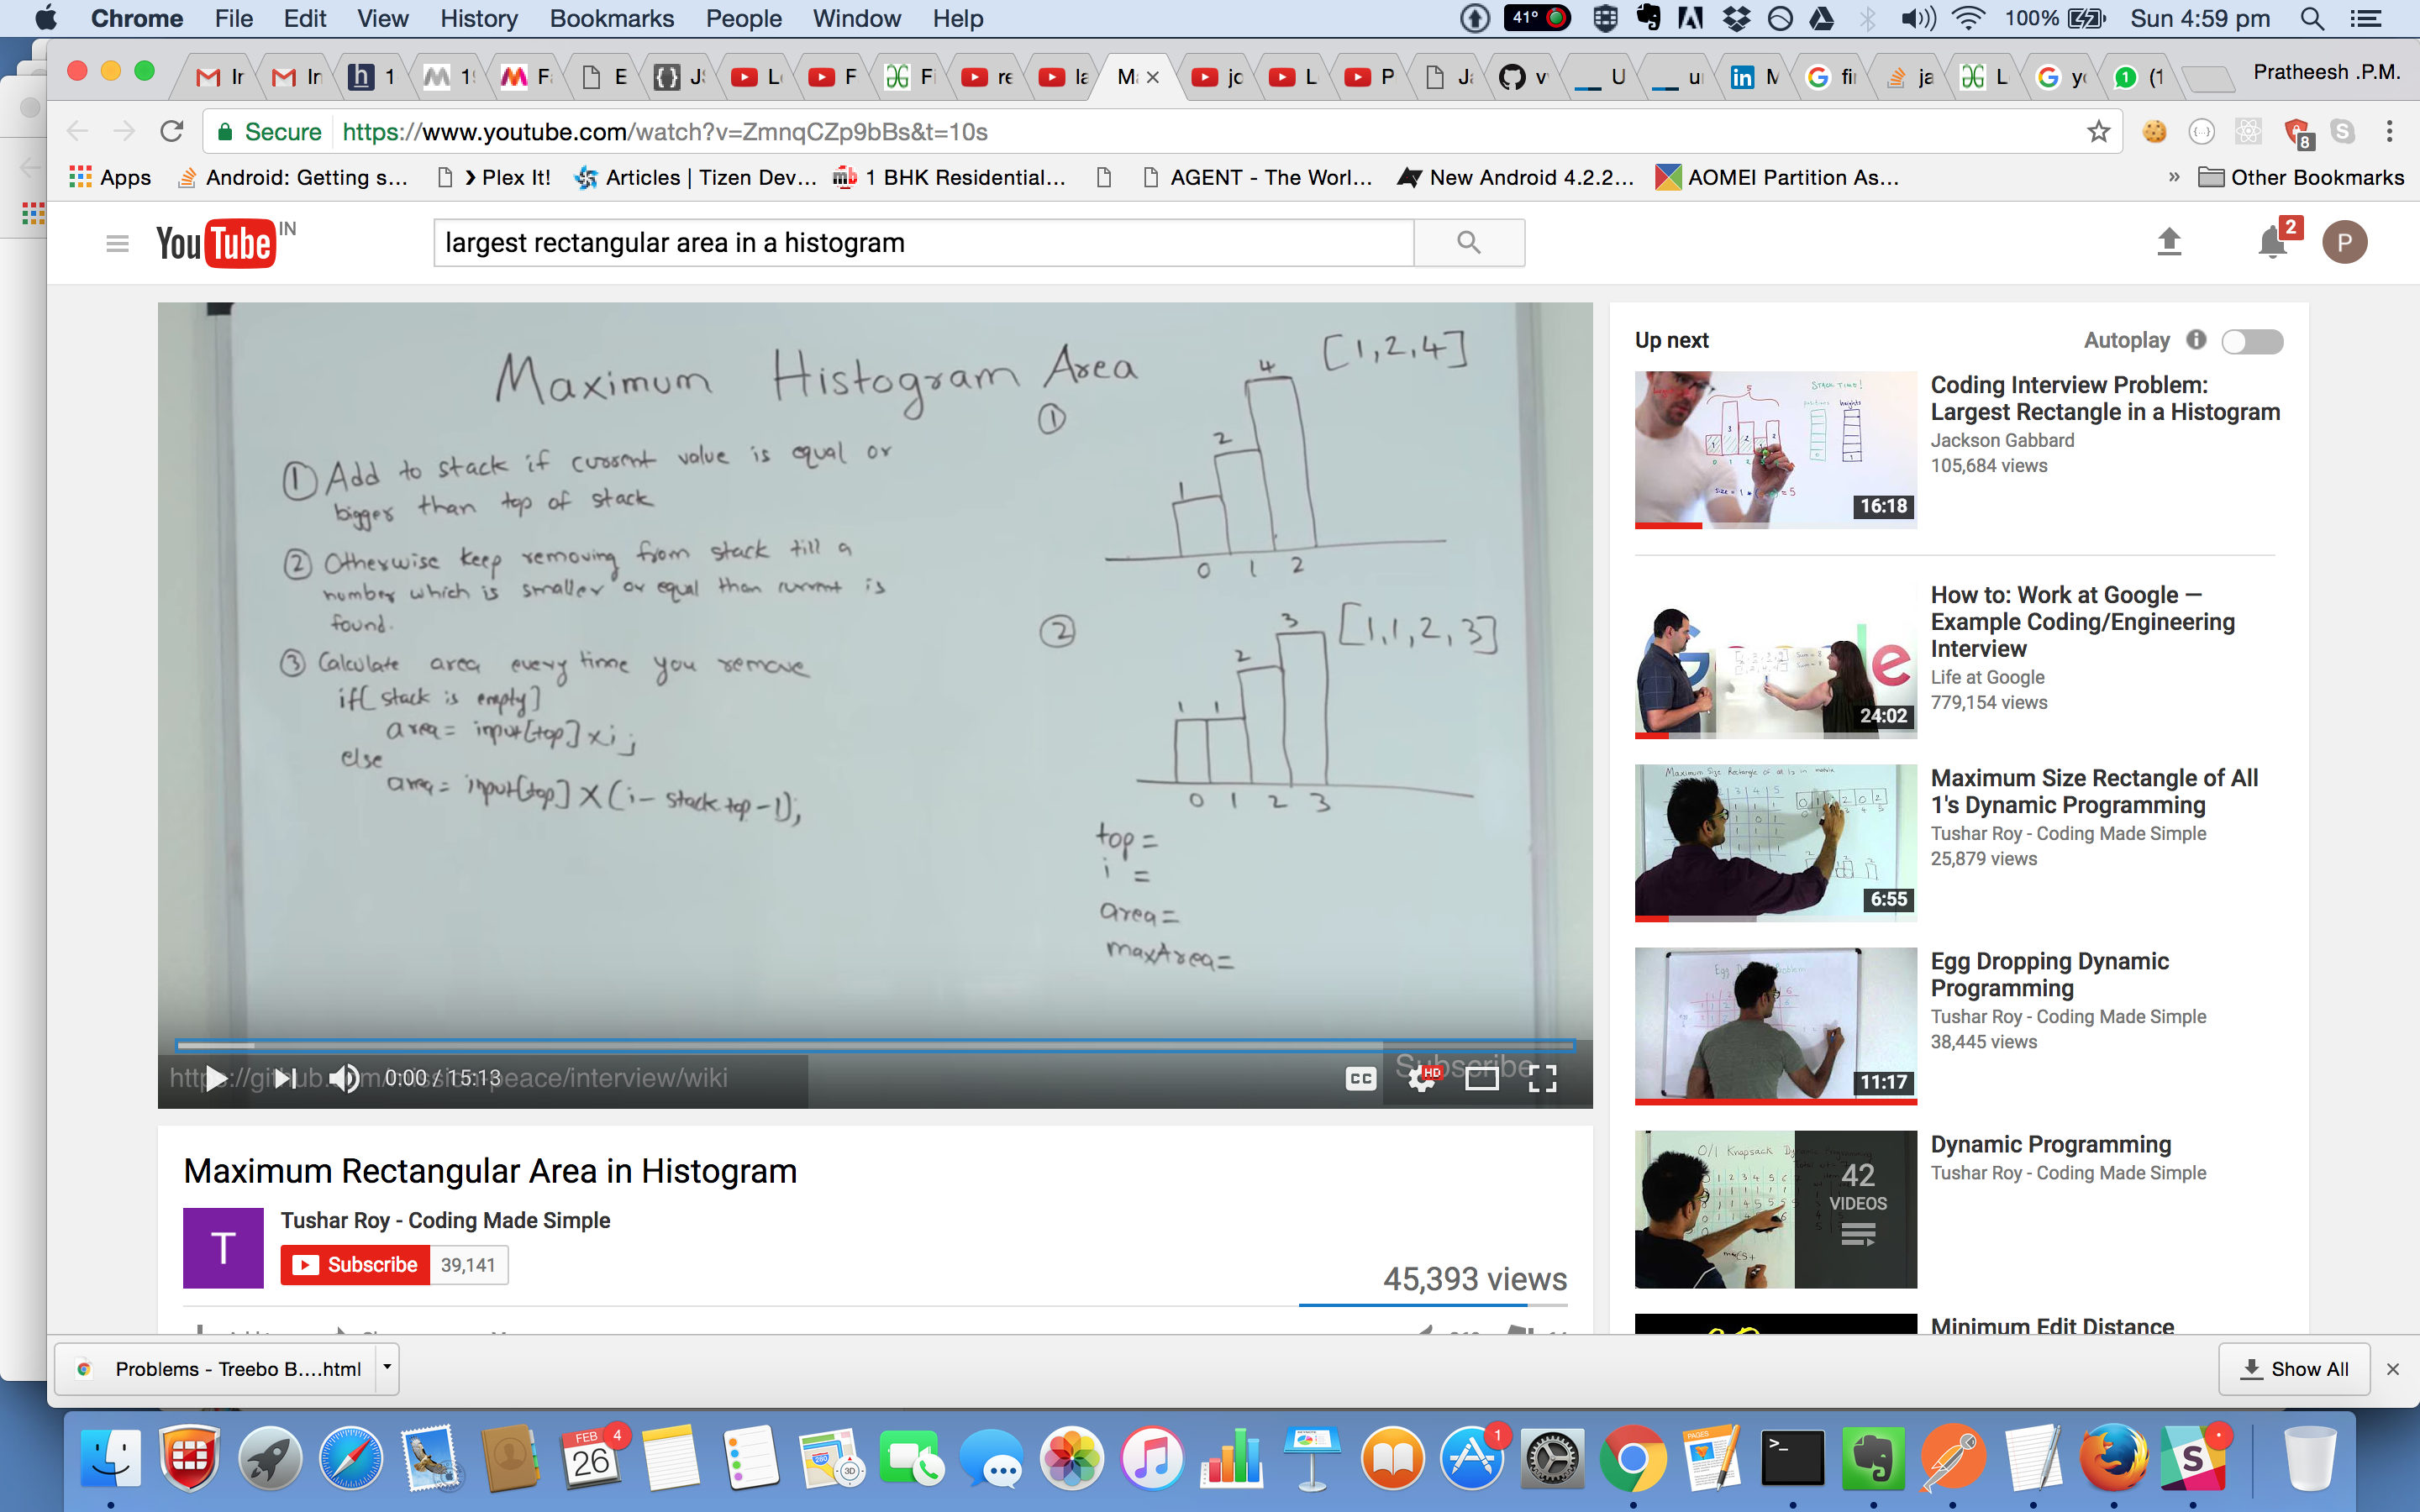 Chrome File Edit View History Bookmarks People Window Help
41° 100% Sun 4:59 pm
Pratheesh .P.M.
Secure https://www.youtube.com/watch?v=ZmnqCZp9bBs&t=10s
8
Apps Android: Getting s... Plex It! Articles | Tizen Dev... 1 BHK Residential... AGENT - The Worl... New Android 4.2.2... AOMEI Partition As... » Other Bookmarks
YouTube IN
largest rectangular area in a histogram
2
P
Maximum Histogram Area
① Add to stack if current value is equal or
bigger than top of stack
② Otherwise keep removing from stack till a
number which is smaller or equal than current is
found.
③ Calculate area every time you remove
if( stack is empty)
area = input[top] x i;
else
area = input[top] X (i - stack top - 1);
① [1,2,4]
1 2 4
0 1 2
② [1,1,2,3]
1 1 2 3
0 1 2 3
top =
i =
area =
maxArea =
0:00 / 15:13
CC
HD
Subscribe
Maximum Rectangular Area in Histogram
T
Tushar Roy - Coding Made Simple
Subscribe 39,141
45,393 views
Up next
Autoplay
16:18
Coding Interview Problem:
Largest Rectangle in a Histogram
Jackson Gabbard
105,684 views
24:02
How to: Work at Google —
Example Coding/Engineering
Interview
Life at Google
779,154 views
6:55
Maximum Size Rectangle of All
1's Dynamic Programming
Tushar Roy - Coding Made Simple
25,879 views
11:17
Egg Dropping Dynamic
Programming
Tushar Roy - Coding Made Simple
38,445 views
42
VIDEOS
Dynamic Programming
Tushar Roy - Coding Made Simple
Minimum Edit Distance
Problems - Treebo B....html
Show All
FEB
26
4
1